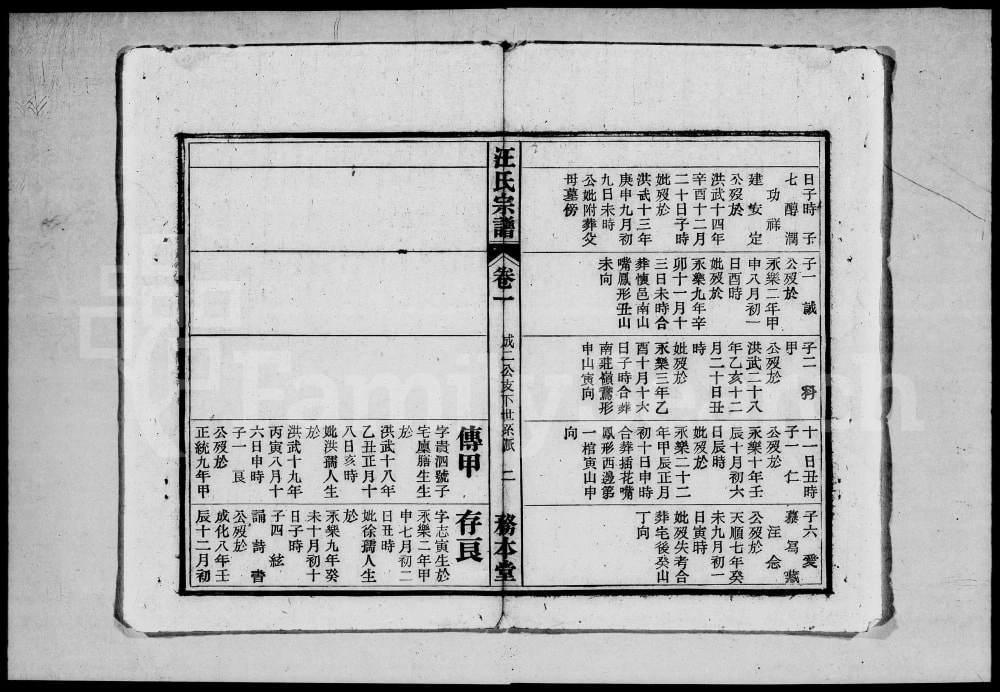 日子時 子
七 醇 潤
功 祥
建 安 定
公歿於
洪武十四年
辛酉十二月
二十日子時
妣歿於
洪武十三年
庚申九月初
九日未時
公妣附葬父
母墓傍
子一 誠
公歿於
永樂二年甲
申八月初一
日酉時
妣歿於
永樂九年辛
卯十一月十
三日未時合
葬懷邑南山
嘴鳳形丑山
未向
子二 科
甲
公歿於
洪武二十八
年乙亥十二
月二十日丑
時
妣歿於
永樂三年乙
酉十月十六
日子時合葬
南莊嶺鵞形
申山寅向
十一日丑時
子一 仁
公歿於
永樂十年壬
辰十月初六
日辰時
妣歿於
永樂二十二
年甲辰正月
初十日申時
合葬插花嘴
鳳形西邊第
一棺寅山申
向
子六 愛
慕 寫 藏
汪 念
公歿於
天順七年癸
未九月初一
日寅時
妣歿失考合
葬宅後癸山
丁向
汪氏宗譜
卷一
成二公支下世系派 二
務本堂
傳甲
字貴泗號子
宅廩膳生生
於
洪武十八年
乙丑正月十
八日亥時
妣洪孺人生
於
洪武十九年
丙寅八月十
六日申時
子一 良
公歿於
正統九年甲
存良
字志寅生於
永樂二年甲
申七月初二
日丑時
妣徐孺人生
於
永樂九年癸
未十月初十
日子時
子四 絃
誦 詩 書
公歿於
成化八年壬
辰十二月初
FamilySearch